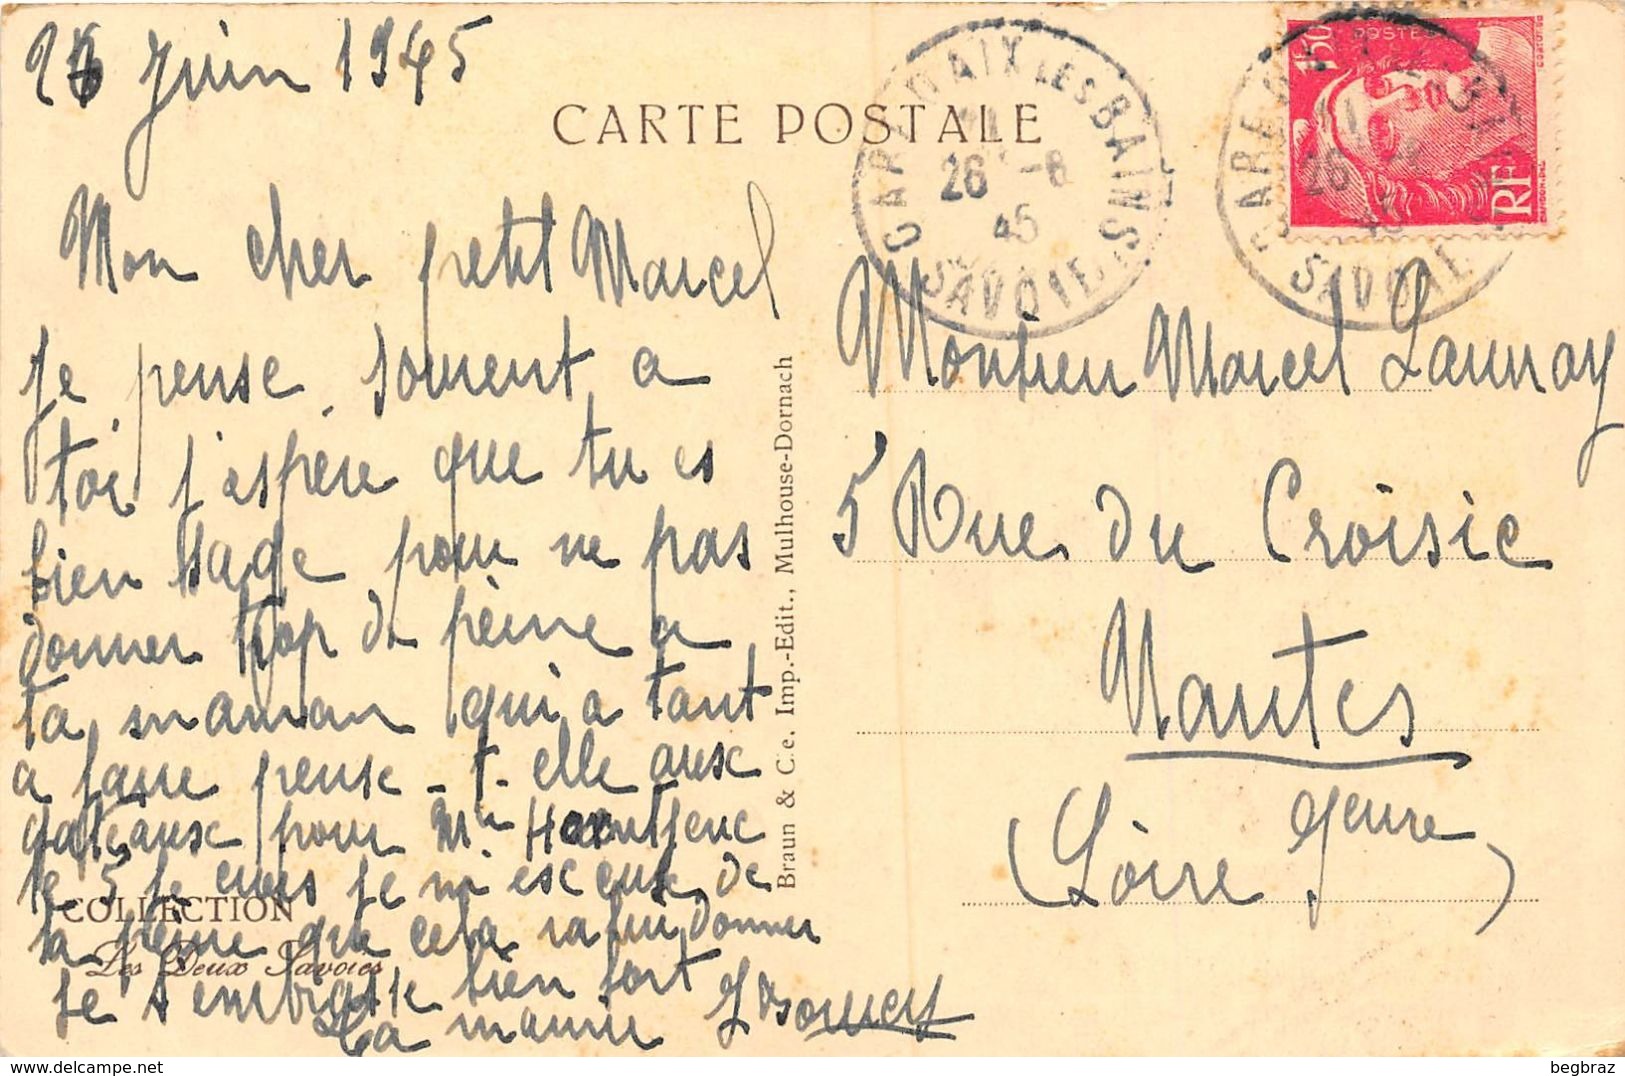 26 Juin 1945
CARTE POSTALE
GARE D'AIX LES BAINS
26 -6
45
SAVOIE
POSTES
1F50
RF
GARE
26
SAVOIE
Mon cher petit Marcel
je pense souvent a
toi j'espère que tu es
bien sage pour ne pas
donner trop de peine a
ta maman qui a tant
a faire pense-t-elle aux
gateaux pour
le 5 je
la peine que cela va lui donner
je t'embrasse bien fort
ta mamie
Monsieur Marcel Launay
5 Rue du Croisic
Nantes
(Loire Inferieure)
Braun & C.e, Imp.-Edit., Mulhouse-Dornach
COLLECTION
Les Deux Savoies
begbraz